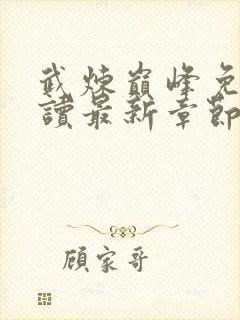 武煉巔峰免
讀最新章節
顾家哥